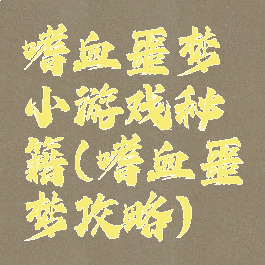 嗜血噩梦
小游戏秘
籍(嗜血噩
梦攻略)